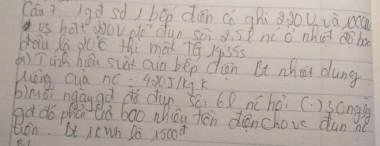 Câu 7 1gđ sd 1 bếp điện có ghi 220V và 1000W
đc để đun sôi 2.5l nc ở nhiệt độ ban
đầu là 20°C thì mất TG 14'35s
a) Tính hiệu suất của bếp điện bt nhiệt dung
riêng của nc - 4200J/kg.k
b) mỗi ngày gđ đó đun sôi 6l nc hỏi (.) 30 ngày
gđ đó phải trả bao nhiêu tiền điện cho vc đun nc
trên. bt 1kWh là 1500đ